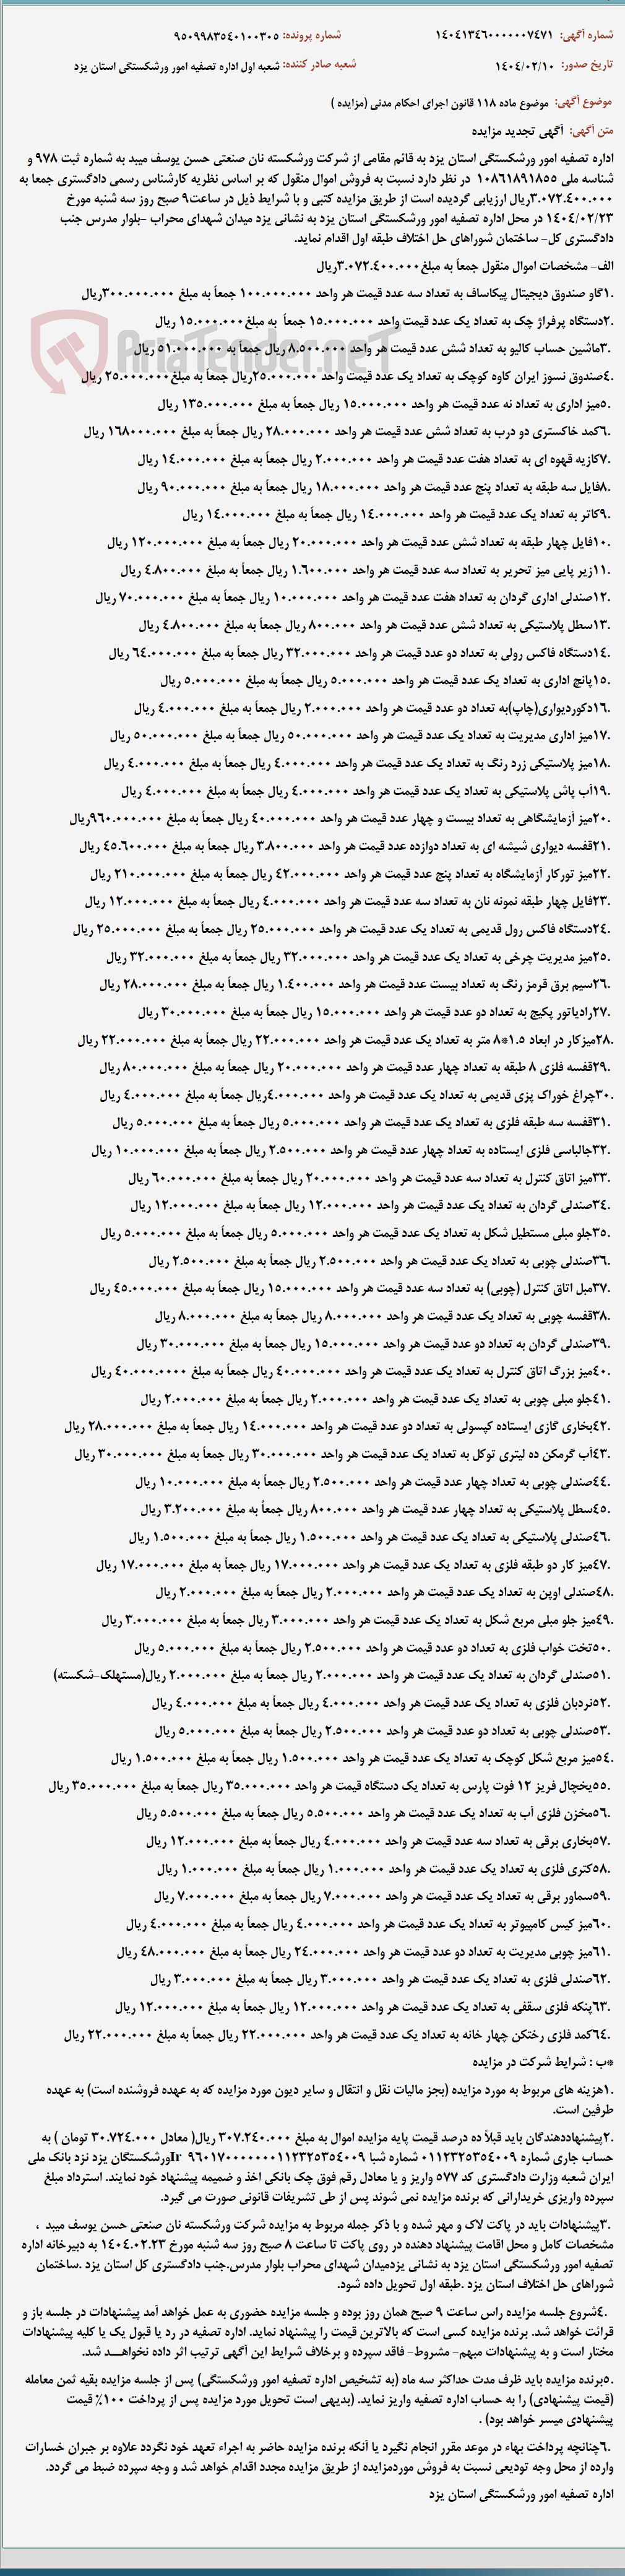 شماره آگهی: ۱۴۰۴۱۳۴۶۰۰۰۰۰۰۷۴۷۱ شماره پرونده: ۹۵۰۹۹۸۳۵۴۰۱۰۰۳۰۵
تاریخ صدور: ۱۴۰۴/۰۲/۱۰ شعبه صادر کننده: شعبه اول اداره تصفیه امور ورشکستگی استان یزد
موضوع آگهی: موضوع ماده ۱۱۸ قانون اجرای احکام مدنی (مزایده )
متن آگهی: آگهی تجدید مزایده
اداره تصفیه امور ورشکستگی استان یزد به قائم مقامی از شرکت ورشکسته نان صنعتی حسن یوسف میبد به شماره ثبت ۹۷۸ و
شناسه ملی ۱۰۸۶۱۸۹۱۸۵۵ در نظر دارد نسبت به فروش اموال منقول که بر اساس نظریه کارشناس رسمی دادگستری جمعا به
۳.۰۷۲.۴۰۰.۰۰۰ریال ارزیابی گردیده است از طریق مزایده کتبی و با شرایط ذیل در ساعت۹ صبح روز سه شنبه مورخ
۱۴۰۴/۰۲/۲۳ در محل اداره تصفیه امور ورشکستگی استان یزد به نشانی یزد میدان شهدای محراب –بلوار مدرس جنب
دادگستری کل– ساختمان شوراهای حل اختلاف طبقه اول اقدام نماید.
الف– مشخصات اموال منقول جمعاً به مبلغ۳.۰۷۲.۴۰۰.۰۰۰ریال
.۱گاو صندوق دیجیتال پیکاساف به تعداد سه عدد قیمت هر واحد ۱۰۰.۰۰۰.۰۰۰ جمعاً به مبلغ ۳۰۰.۰۰۰.۰۰۰ریال
.۲دستگاه پرفراژ چک به تعداد یک عدد قیمت واحد ۱۵.۰۰۰.۰۰۰ جمعاً به مبلغ۱۵.۰۰۰.۰۰۰ ریال
.۳ماشین حساب کالیو به تعداد شش عدد قیمت هر واحد ۸.۵۰۰.۰۰۰ ریال جمعاً به ۵۱.۰۰۰.۰۰۰ ریال
.۴صندوق نسوز ایران کاوه کوچک به تعداد یک عدد قیمت واحد ۲۵.۰۰۰.۰۰۰ریال جمعاً به مبلغ۲۵.۰۰۰.۰۰۰ ریال
.۵میز اداری به تعداد نه عدد قیمت هر واحد ۱۵.۰۰۰.۰۰۰ ریال جمعاً به مبلغ ۱۳۵.۰۰۰.۰۰۰ ریال
.۶کمد خاکستری دو درب به تعداد شش عدد قیمت هر واحد ۲۸.۰۰۰.۰۰۰ ریال جمعاً به مبلغ ۱۶۸۰۰۰.۰۰۰ ریال
.۷کازیه قهوه ای به تعداد هفت عدد قیمت هر واحد ۲.۰۰۰.۰۰۰ ریال جمعاً به مبلغ ۱۴.۰۰۰.۰۰۰ ریال
.۸فایل سه طبقه به تعداد پنج عدد قیمت هر واحد ۱۸.۰۰۰.۰۰۰ ریال جمعاً به مبلغ ۹۰.۰۰۰.۰۰۰ ریال
.۹کاتر به تعداد یک عدد قیمت هر واحد ۱۴.۰۰۰.۰۰۰ ریال جمعاً به مبلغ ۱۴.۰۰۰.۰۰۰ ریال
.۱۰فایل چهار طبقه به تعداد شش عدد قیمت هر واحد ۲۰.۰۰۰.۰۰۰ ریال جمعاً به مبلغ ۱۲۰.۰۰۰.۰۰۰ ریال
.۱۱زیر پایی میز تحریر به تعداد سه عدد قیمت هر واحد ۱.۶۰۰.۰۰۰ ریال جمعاً به مبلغ ۴.۸۰۰.۰۰۰ ریال
.۱۲صندلی اداری گردان به تعداد هفت عدد قیمت هر واحد ۱۰.۰۰۰.۰۰۰ ریال جمعاً به مبلغ ۷۰.۰۰۰.۰۰۰ ریال
.۱۳سطل پلاستیکی به تعداد شش عدد قیمت هر واحد ۸۰۰.۰۰۰ ریال جمعاً به مبلغ ۴.۸۰۰.۰۰۰ ریال
.۱۴دستگاه فاکس رولی به تعداد دو عدد قیمت هر واحد ۳۲.۰۰۰.۰۰۰ ریال جمعاً به مبلغ ۶۴.۰۰۰.۰۰۰ ریال
.۱۵پانچ اداری به تعداد یک عدد قیمت هر واحد ۵.۰۰۰.۰۰۰ ریال جمعاً به مبلغ ۵.۰۰۰.۰۰۰ ریال
.۱۶دکوردیواری(چاپ)به تعداد دو عدد قیمت هر واحد ۲.۰۰۰.۰۰۰ ریال جمعاً به مبلغ ۴.۰۰۰.۰۰۰ ریال
.۱۷میز اداری مدیریت به تعداد یک عدد قیمت هر واحد ۵۰.۰۰۰.۰۰۰ ریال جمعاً به مبلغ ۵۰.۰۰۰.۰۰۰ ریال
.۱۸میز پلاستیکی زرد رنگ به تعداد یک عدد قیمت هر واحد ۴.۰۰۰.۰۰۰ ریال جمعاً به مبلغ ۴.۰۰۰.۰۰۰ ریال
.۱۹آب پاش پلاستیکی به تعداد یک عدد قیمت هر واحد ۴.۰۰۰.۰۰۰ ریال جمعاً به مبلغ ۴.۰۰۰.۰۰۰ ریال
.۲۰میز آزمایشگاهی به تعداد بیست و چهار عدد قیمت هر واحد ۴۰.۰۰۰.۰۰۰ ریال جمعاً به مبلغ ۹۶۰.۰۰۰.۰۰۰ریال
.۲۱قفسه دیواری شیشه ای به تعداد دوازده عدد قیمت هر واحد ۳.۸۰۰.۰۰۰ ریال جمعاً به مبلغ ۴۵.۶۰۰.۰۰۰ ریال
.۲۲میز تورکار آزمایشگاه به تعداد پنج عدد قیمت هر واحد ۴۲.۰۰۰.۰۰۰ ریال جمعاً به مبلغ ۲۱۰.۰۰۰.۰۰۰ ریال
.۲۳فایل چهار طبقه نمونه نان به تعداد سه عدد قیمت هر واحد ۴.۰۰۰.۰۰۰ ریال جمعاً به مبلغ ۱۲.۰۰۰.۰۰۰ ریال
.۲۴دستگاه فاکس رول قدیمی به تعداد یک عدد قیمت هر واحد ۲۵.۰۰۰.۰۰۰ ریال جمعاً به مبلغ ۲۵.۰۰۰.۰۰۰ ریال
.۲۵میز مدیریت چرخی به تعداد یک عدد قیمت هر واحد ۳۲.۰۰۰.۰۰۰ ریال جمعاً به مبلغ ۳۲.۰۰۰.۰۰۰ ریال
.۲۶سیم برق قرمز رنگ به تعداد بیست عدد قیمت هر واحد ۱.۴۰۰.۰۰۰ ریال جمعاً به مبلغ ۲۸.۰۰۰.۰۰۰ ریال
.۲۷رادیاتور پکیج به تعداد دو عدد قیمت هر واحد ۱۵.۰۰۰.۰۰۰ ریال جمعاً به مبلغ ۳۰.۰۰۰.۰۰۰ ریال
.۲۸میزکار در ابعاد ۱.۵*۸ متر به تعداد یک عدد قیمت هر واحد ۲۲.۰۰۰.۰۰۰ ریال جمعاً به مبلغ ۲۲.۰۰۰.۰۰۰ ریال
.۲۹قفسه فلزی ۸ طبقه به تعداد چهار عدد قیمت هر واحد ۲۰.۰۰۰.۰۰۰ ریال جمعاً به مبلغ ۸۰.۰۰۰.۰۰۰ ریال
.۳۰چراغ خوراک پزی قدیمی به تعداد یک عدد قیمت هر واحد ۴.۰۰۰.۰۰۰ریال جمعاً به مبلغ ۴.۰۰۰.۰۰۰ ریال
.۳۱قفسه سه طبقه فلزی به تعداد یک عدد قیمت هر واحد ۵.۰۰۰.۰۰۰ ریال جمعاً به مبلغ ۵.۰۰۰.۰۰۰ ریال
.۳۲جالباسی فلزی ایستاده به تعداد چهار عدد قیمت هر واحد ۲.۵۰۰.۰۰۰ ریال جمعاً به مبلغ ۱۰.۰۰۰.۰۰۰ ریال
.۳۳میز اتاق کنترل به تعداد سه عدد قیمت هر واحد ۲۰.۰۰۰.۰۰۰ ریال جمعاً به مبلغ ۶۰.۰۰۰.۰۰۰ ریال
.۳۴صندلی گردان به تعداد یک عدد قیمت هر واحد ۱۲.۰۰۰.۰۰۰ ریال جمعاً به مبلغ ۱۲.۰۰۰.۰۰۰ ریال
.۳۵جلو مبلی مستطیل شکل به تعداد یک عدد قیمت هر واحد ۵.۰۰۰.۰۰۰ ریال جمعاً به مبلغ ۵.۰۰۰.۰۰۰ ریال
.۳۶صندلی چوبی به تعداد یک عدد قیمت هر واحد ۲.۵۰۰.۰۰۰ ریال جمعاً به مبلغ ۲.۵۰۰.۰۰۰ ریال
.۳۷مبل اتاق کنترل (چوبی) به تعداد سه عدد قیمت هر واحد ۱۵.۰۰۰.۰۰۰ ریال جمعاً به مبلغ ۴۵.۰۰۰.۰۰۰ ریال
.۳۸قفسه چوبی به تعداد یک عدد قیمت هر واحد ۸.۰۰۰.۰۰۰ ریال جمعاً به مبلغ ۸.۰۰۰.۰۰۰ ریال
.۳۹صندلی گردان به تعداد دو عدد قیمت هر واحد ۱۵.۰۰۰.۰۰۰ ریال جمعاً به مبلغ ۳۰.۰۰۰.۰۰۰ ریال
.۴۰میز بزرگ اتاق کنترل به تعداد یک عدد قیمت هر واحد ۴۰.۰۰۰.۰۰۰ ریال جمعاً به مبلغ ۴۰.۰۰۰.۰۰۰۰ ریال
.۴۱جلو مبلی چوبی به تعداد یک عدد قیمت هر واحد ۲.۰۰۰.۰۰۰ ریال جمعاً به مبلغ ۲.۰۰۰.۰۰۰ ریال
.۴۲بخاری گازی ایستاده کپسولی به تعداد دو عدد قیمت هر واحد ۱۴.۰۰۰.۰۰۰ ریال جمعاً به مبلغ ۲۸.۰۰۰.۰۰۰ ریال
.۴۳آب گرمکن ده لیتری توکل به تعداد یک عدد قیمت هر واحد ۳۰.۰۰۰.۰۰۰ ریال جمعاً به مبلغ ۳۰.۰۰۰.۰۰۰ ریال
.۴۴صندلی چوبی به تعداد چهار عدد قیمت هر واحد ۲.۵۰۰.۰۰۰ ریال جمعاً به مبلغ ۱۰.۰۰۰.۰۰۰ ریال
.۴۵سطل پلاستیکی به تعداد چهار عدد قیمت هر واحد ۸۰۰.۰۰۰ ریال جمعاً به مبلغ ۳.۲۰۰.۰۰۰ ریال
.۴۶صندلی پلاستیکی به تعداد یک عدد قیمت هر واحد ۱.۵۰۰.۰۰۰ ریال جمعاً به مبلغ ۱.۵۰۰.۰۰۰ ریال
.۴۷میز کار دو طبقه فلزی به تعداد یک عدد قیمت هر واحد ۱۷.۰۰۰.۰۰۰ ریال جمعاً به مبلغ ۱۷.۰۰۰.۰۰۰ ریال
.۴۸صندلی اوپن به تعداد یک عدد قیمت هر واحد ۲.۰۰۰.۰۰۰ ریال جمعاً به مبلغ ۲.۰۰۰.۰۰۰ ریال
.۴۹میز جلو مبلی مربع شکل به تعداد یک عدد قیمت هر واحد ۳.۰۰۰.۰۰۰ ریال جمعاً به مبلغ ۳.۰۰۰.۰۰۰ ریال
.۵۰تخت خواب فلزی به تعداد دو عدد قیمت هر واحد ۲.۵۰۰.۰۰۰ ریال جمعاً به مبلغ ۵.۰۰۰.۰۰۰ ریال
.۵۱صندلی گردان به تعداد یک عدد قیمت هر واحد ۲.۰۰۰.۰۰۰ ریال جمعاً به مبلغ ۲.۰۰۰.۰۰۰ ریال(مستهلک–شکسته)
.۵۲نردبان فلزی به تعداد یک عدد قیمت هر واحد ۴.۰۰۰.۰۰۰ ریال جمعاً به مبلغ ۴.۰۰۰.۰۰۰ ریال
.۵۳صندلی چوبی به تعداد دو عدد قیمت هر واحد ۲.۵۰۰.۰۰۰ ریال جمعاً به مبلغ ۵.۰۰۰.۰۰۰ ریال
.۵۴میز مربع شکل کوچک به تعداد یک عدد قیمت هر واحد ۱.۵۰۰.۰۰۰ ریال جمعاً به مبلغ ۱.۵۰۰.۰۰۰ ریال
.۵۵یخچال فریز ۱۲ فوت پارس به تعداد یک دستگاه قیمت هر واحد ۳۵.۰۰۰.۰۰۰ ریال جمعاً به مبلغ ۳۵.۰۰۰.۰۰۰ ریال
.۵۶مخزن فلزی آب به تعداد یک عدد قیمت هر واحد ۵.۵۰۰.۰۰۰ ریال جمعاً به مبلغ ۵.۵۰۰.۰۰۰ ریال
.۵۷بخاری برقی به تعداد سه عدد قیمت هر واحد ۴.۰۰۰.۰۰۰ ریال جمعاً به مبلغ ۱۲.۰۰۰.۰۰۰ ریال
.۵۸کتری فلزی به تعداد یک عدد قیمت هر واحد ۱.۰۰۰.۰۰۰ ریال جمعاً به مبلغ ۱.۰۰۰.۰۰۰ ریال
.۵۹سماور برقی به تعداد یک عدد قیمت هر واحد ۷.۰۰۰.۰۰۰ ریال جمعاً به مبلغ ۷.۰۰۰.۰۰۰ ریال
.۶۰میز کیس کامپیوتر به تعداد یک عدد قیمت هر واحد ۴.۰۰۰.۰۰۰ ریال جمعاً به مبلغ ۴.۰۰۰.۰۰۰ ریال
.۶۱میز چوبی مدیریت به تعداد دو عدد قیمت هر واحد ۲۴.۰۰۰.۰۰۰ ریال جمعاً به مبلغ ۴۸.۰۰۰.۰۰۰ ریال
.۶۲صندلی فلزی به تعداد یک عدد قیمت هر واحد ۳.۰۰۰.۰۰۰ ریال جمعاً به مبلغ ۳.۰۰۰.۰۰۰ ریال
.۶۳پنکه فلزی سقفی به تعداد یک عدد قیمت هر واحد ۱۲.۰۰۰.۰۰۰ ریال جمعاً به مبلغ ۱۲.۰۰۰.۰۰۰ ریال
.۶۴کمد فلزی رختکن چهار خانه به تعداد یک عدد قیمت هر واحد ۲۲.۰۰۰.۰۰۰ ریال جمعاً به مبلغ ۲۲.۰۰۰.۰۰۰ ریال
*ب : شرایط شرکت در مزایده
.۱هزینه های مربوط به مورد مزایده (بجز مالیات نقل و انتقال و سایر دیون مورد مزایده که به عهده فروشنده است) به عهده
طرفین است.
.۲پیشنهاددهندگان باید قبلاً ده درصد قیمت پایه مزایده اموال به مبلغ ۳۰۷.۲۴۰.۰۰۰ ریال( معادل ۳۰.۷۲۴.۰۰۰ تومان ) به
حساب جاری شماره ۰۱۱۲۳۲۵۳۵۴۰۰۹ شماره شبا Ir ۹۶۰۱۷۰۰۰۰۰۰۰۱۱۲۳۲۵۳۵۴۰۰۹ورشکستگان یزد نزد بانک ملی
ایران شعبه وزارت دادگستری کد ۵۷۷ واریز و یا معادل رقم فوق چک بانکی اخذ و ضمیمه پیشنهاد خود نمایند. استرداد مبلغ
سپرده واریزی خریدارانی که برنده مزایده نمی شوند پس از طی تشریفات قانونی صورت می گیرد.
.۳پیشنهادات باید در پاکت لاک و مهر شده و با ذکر جمله مربوط به مزایده شرکت ورشکسته نان صنعتی حسن یوسف میبد ،
مشخصات کامل و محل اقامت پیشنهاد دهنده در روی پاکت تا ساعت ۸ صبح روز سه شنبه مورخ ۱۴۰۴.۰۲.۲۳ به دبیرخانه اداره
تصفیه امور ورشکستگی استان یزد به نشانی یزدمیدان شهدای محراب بلوار مدرس.جنب دادگستری کل استان یزد .ساختمان
شوراهای حل اختلاف استان یزد .طبقه اول تحویل داده شود.
.۴شروع جلسه مزایده راس ساعت ۹ صبح همان روز بوده و جلسه مزایده حضوری به عمل خواهد آمد پیشنهادات در جلسه باز و
قرائت خواهد شد. برنده مزایده کسی است که بالاترین قیمت را پیشنهاد نماید. اداره تصفیه در رد یا قبول یک یا کلیه پیشنهادات
مختار است و به پیشنهادات مبهم– مشروط– فاقد سپرده و برخلاف شرایط این آگهی ترتیب اثر داده نخواهـــد شد.
.۵برنده مزایده باید ظرف مدت حداکثر سه ماه (به تشخیص اداره تصفیه امور ورشکستگی) پس از جلسه مزایده بقیه ثمن معامله
(قیمت پیشنهادی) را به حساب اداره تصفیه واریز نماید. (بدیهی است تحویل مورد مزایده پس از پرداخت ۱۰۰٪ قیمت
پیشنهادی میسر خواهد بود) .
.۶چنانچه پرداخت بهاء در موعد مقرر انجام نگیرد یا آنکه برنده مزایده حاضر به اجراء تعهد خود نگردد علاوه بر جبران خسارات
وارده از محل وجه تودیعی نسبت به فروش موردمزایده از طریق مزایده مجدد اقدام خواهد شد و وجه سپرده ضبط می گردد.
اداره تصفیه امور ورشکستگی استان یزد
AriaTender.neT